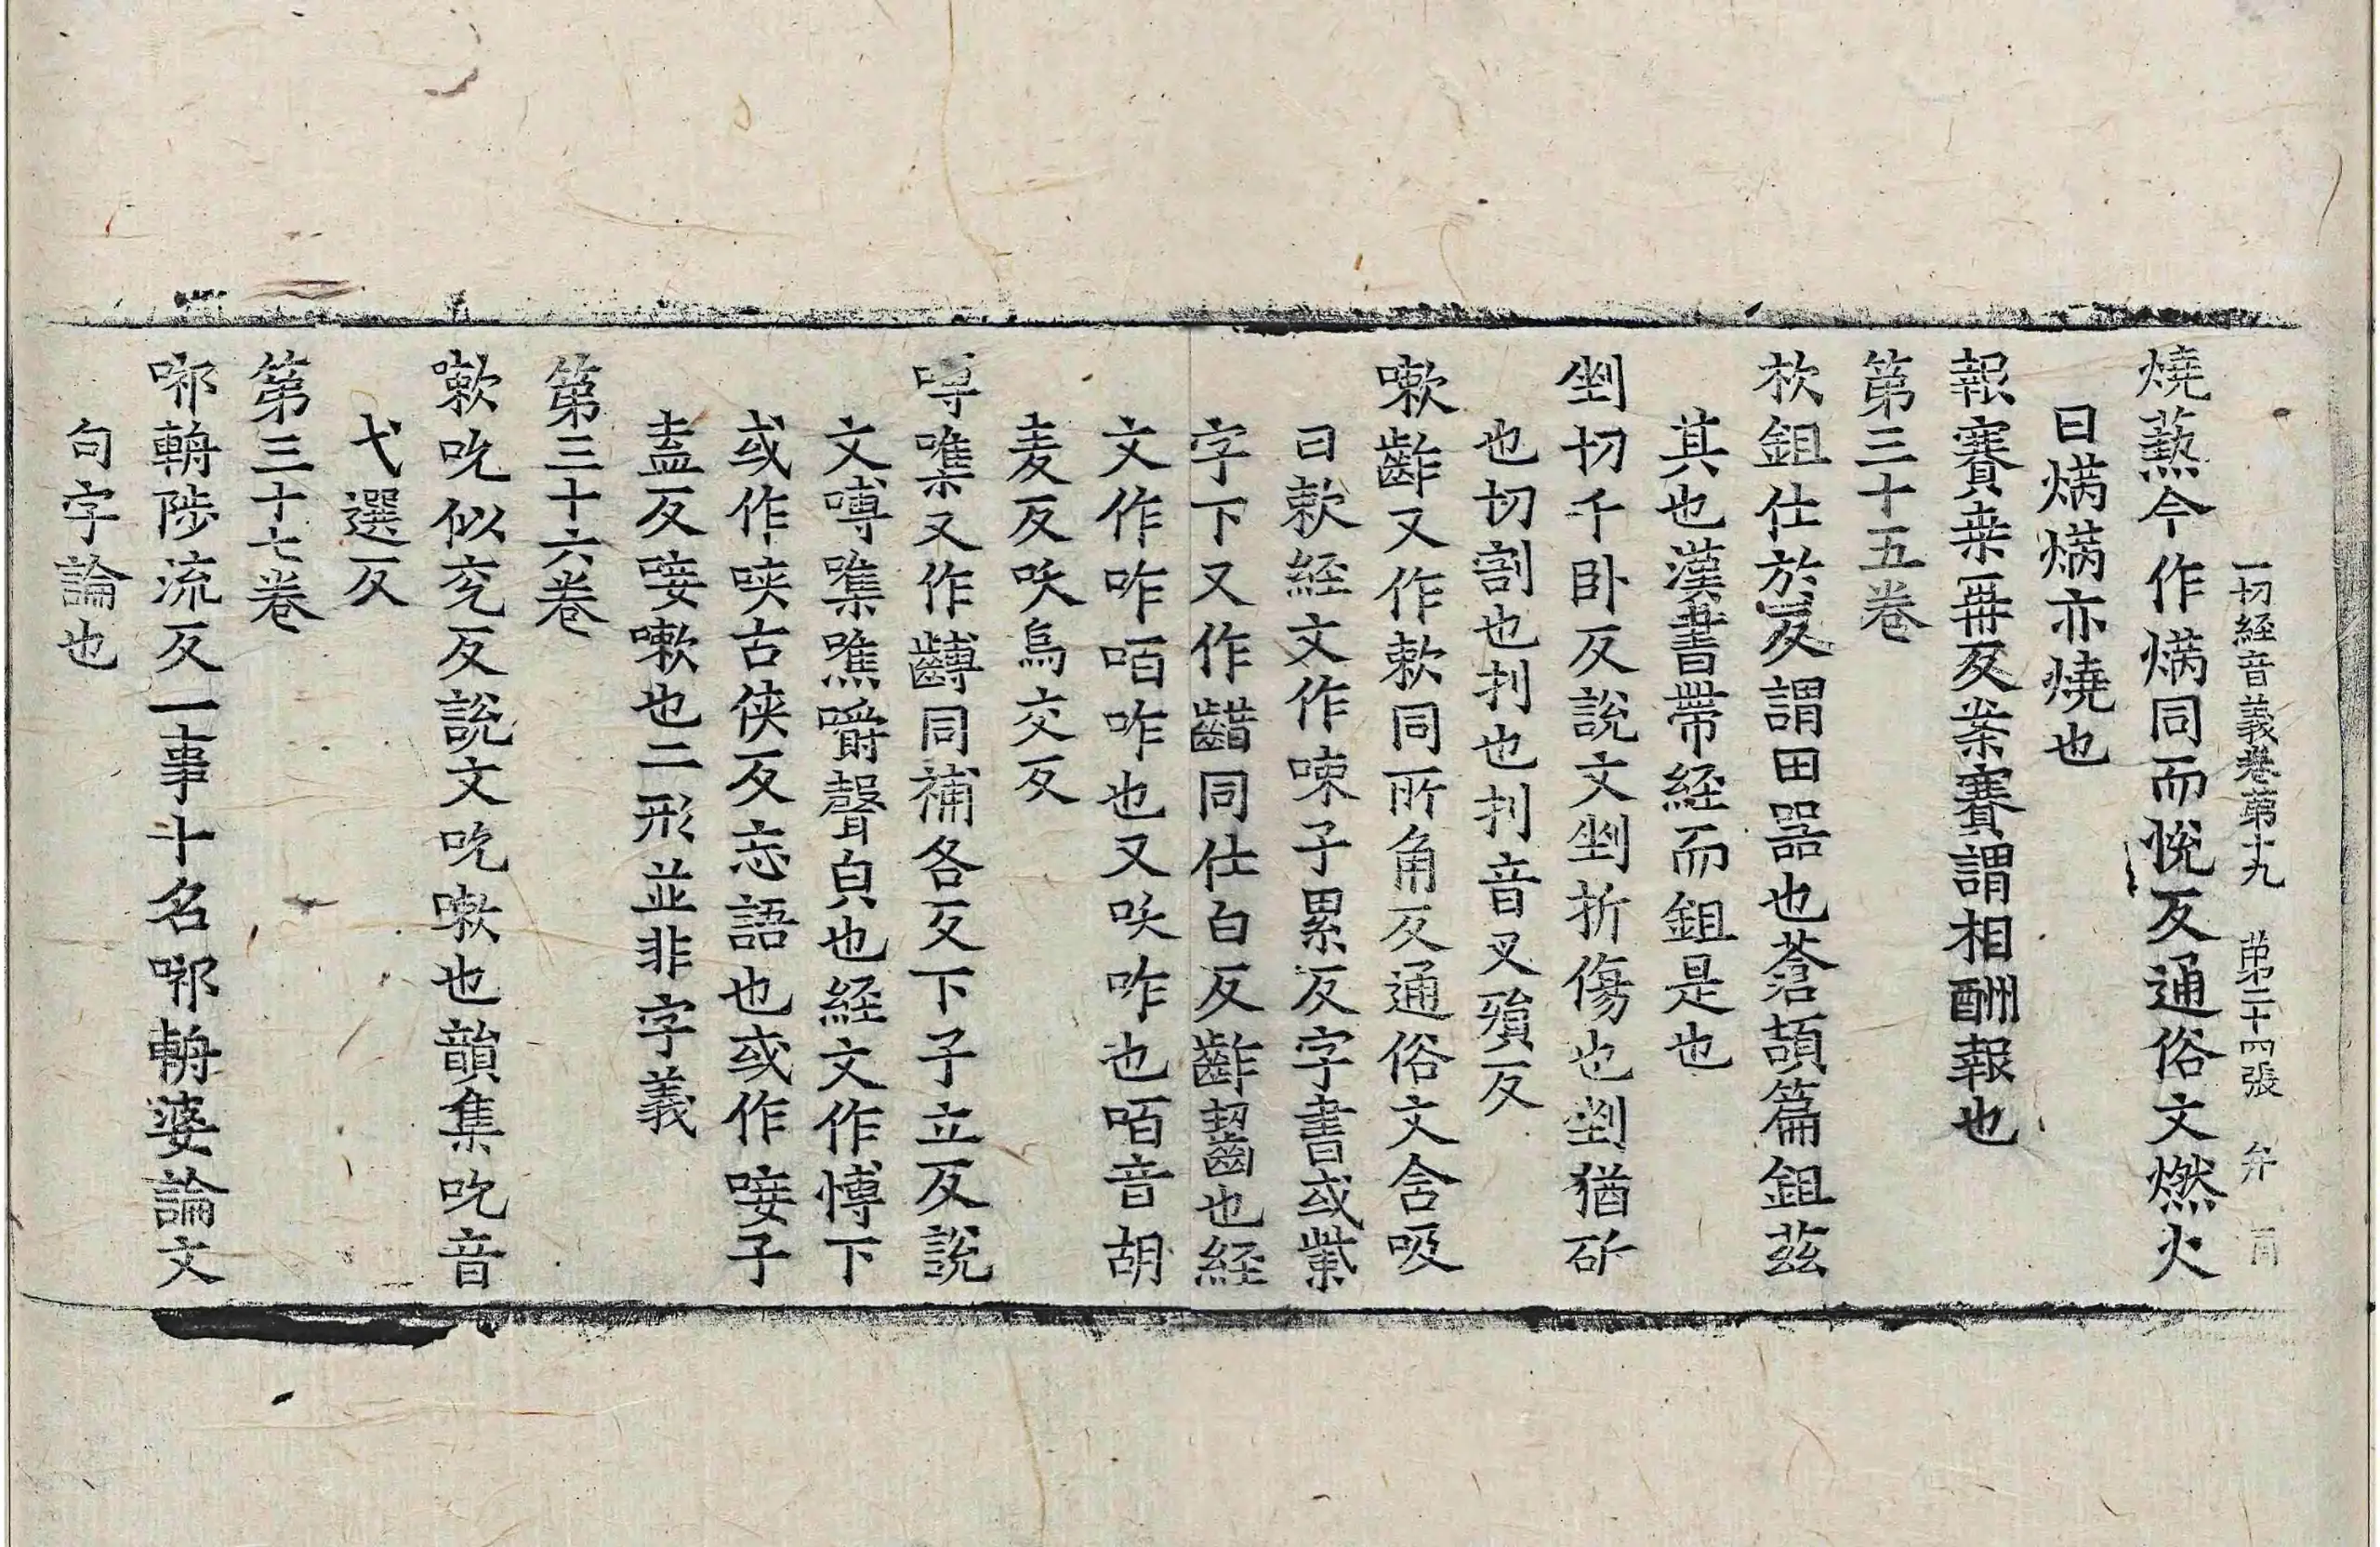 一切経音義卷苐十九 苐二十四張 弁
燒爇今作焫同而悅反通俗文燃火
曰焫焫亦燒也
報賽桒再反案賽謂相酬報也
第三十五卷
杴鉏仕於反謂田器也蒼頡篇鉏茲
其也漢書帶経而鉏是也
剉切千卧反說文剉折傷也剉猶斫
也切割也刌也刌音叉殞反
嗽齰又作欶同所角反通俗文含吸
曰欶経文作㖩子累反字書或㭰
字下又作齚同仕白反齰齧也経
文作咋咟咋也又咲咋也咟音胡
麦反咲烏交反
噂㗱又作㗘同補各反下子立反說
文噂㗱噍嚼聲皃也経文作愽下
或作唊古俠反忘語也或作唼子
盍反唼嗽也二形並非字義
第三十六卷
嗽吮似兖反說文吮嗽也韻集吮音
弋選反
第三十七卷
哪輈陟流反一事十名哪輈婆論文
句字論也